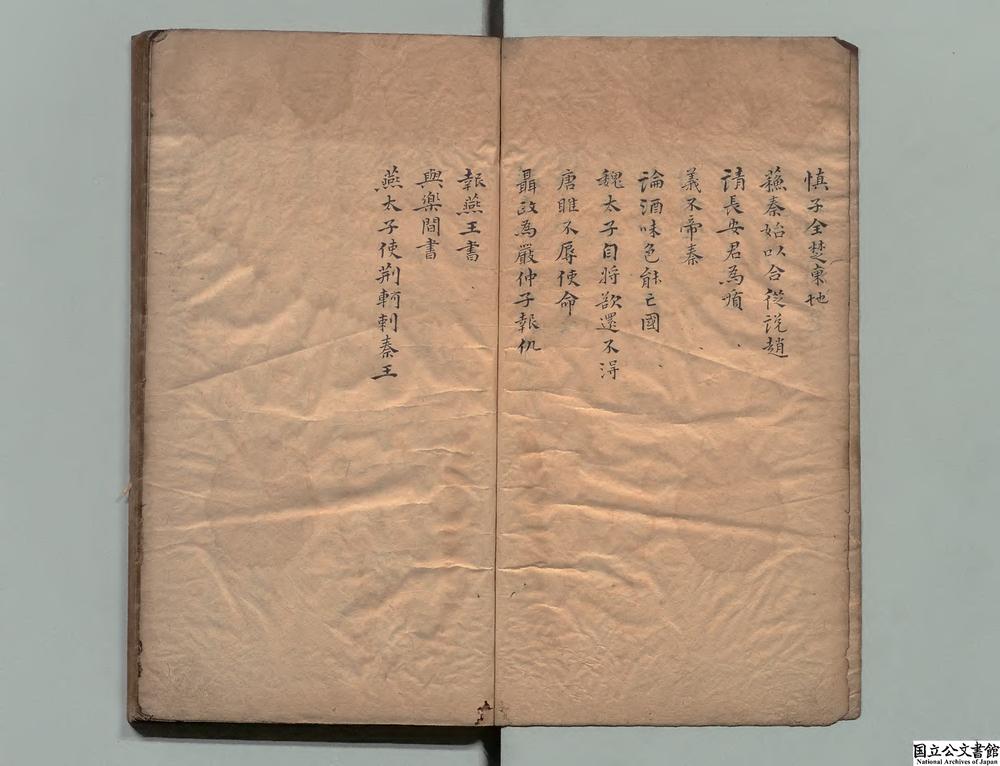 慎子全楚東地
蘓秦始以合從説趙
請長安君為質
義不帝秦
論酒味色能亡國
魏太子自将欲還不得
唐雎不辱使命
聶政為嚴仲子報仇
報燕王書
與樂間書
燕太子使荆軻刺秦王
国立公文書館
National Archives of Japan